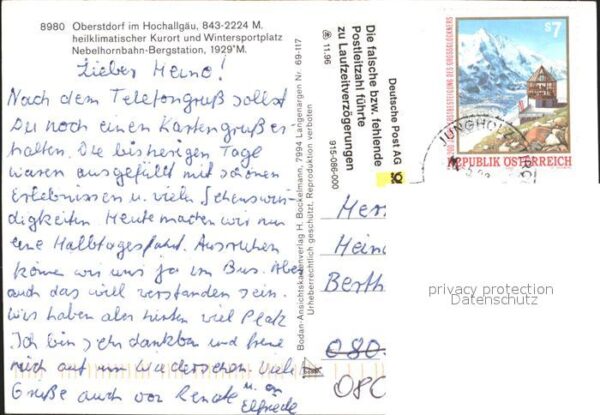 8980 Oberstdorf im Hochallgäu, 843-2224 M.
heilklimatischer Kurort und Wintersportplatz
Nebelhornbahn-Bergstation, 1929 M.
Lieber Heino!
Nach dem Telefongruß sollst
Du noch einen Kartengruß er-
halten. Die bisherigen Tage
waren ausgefüllt mit schönen
Erlebnissen u. vielen Sehenswür-
digkeiten Heute machen wir nur
eine Halbtagesfahrt. Ausruhen
können wir uns ja im Bus. Aber
auch das will verstanden sein.
Wir haben aber hinten viel Platz
Ich bin sehr dankbar und freue
mich auf ein Wiedersehen. Viele
Grüße auch von Renate u. an
Elfriede
Bodan-Ansichtskartenverlag H. Bockelmann, 7994 Langenargen Nr. 69-117
Urheberrechtlich geschützt. Reproduktion verboten
Die falsche bzw. fehlende
Postleitzahl führte
zu Laufzeitverzögerungen
11.96
915-066-000
Deutsche Post AG
S7
REPUBLIK ÖSTERREICH
JUNGHOLZ
Her
Hein
Berth
080-
080
privacy protection
Datenschutz